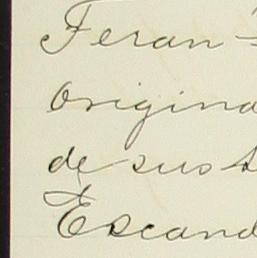 Feran-
origina
de sus
Escand